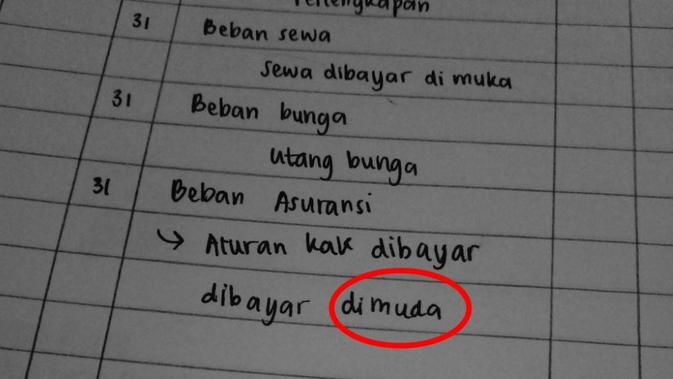 Perlengkapan
31 Beban sewa
Sewa dibayar di muka
31 Beban bunga
Utang bunga
31 Beban Asuransi
↳ Aturan kak dibayar
dibayar dimuda